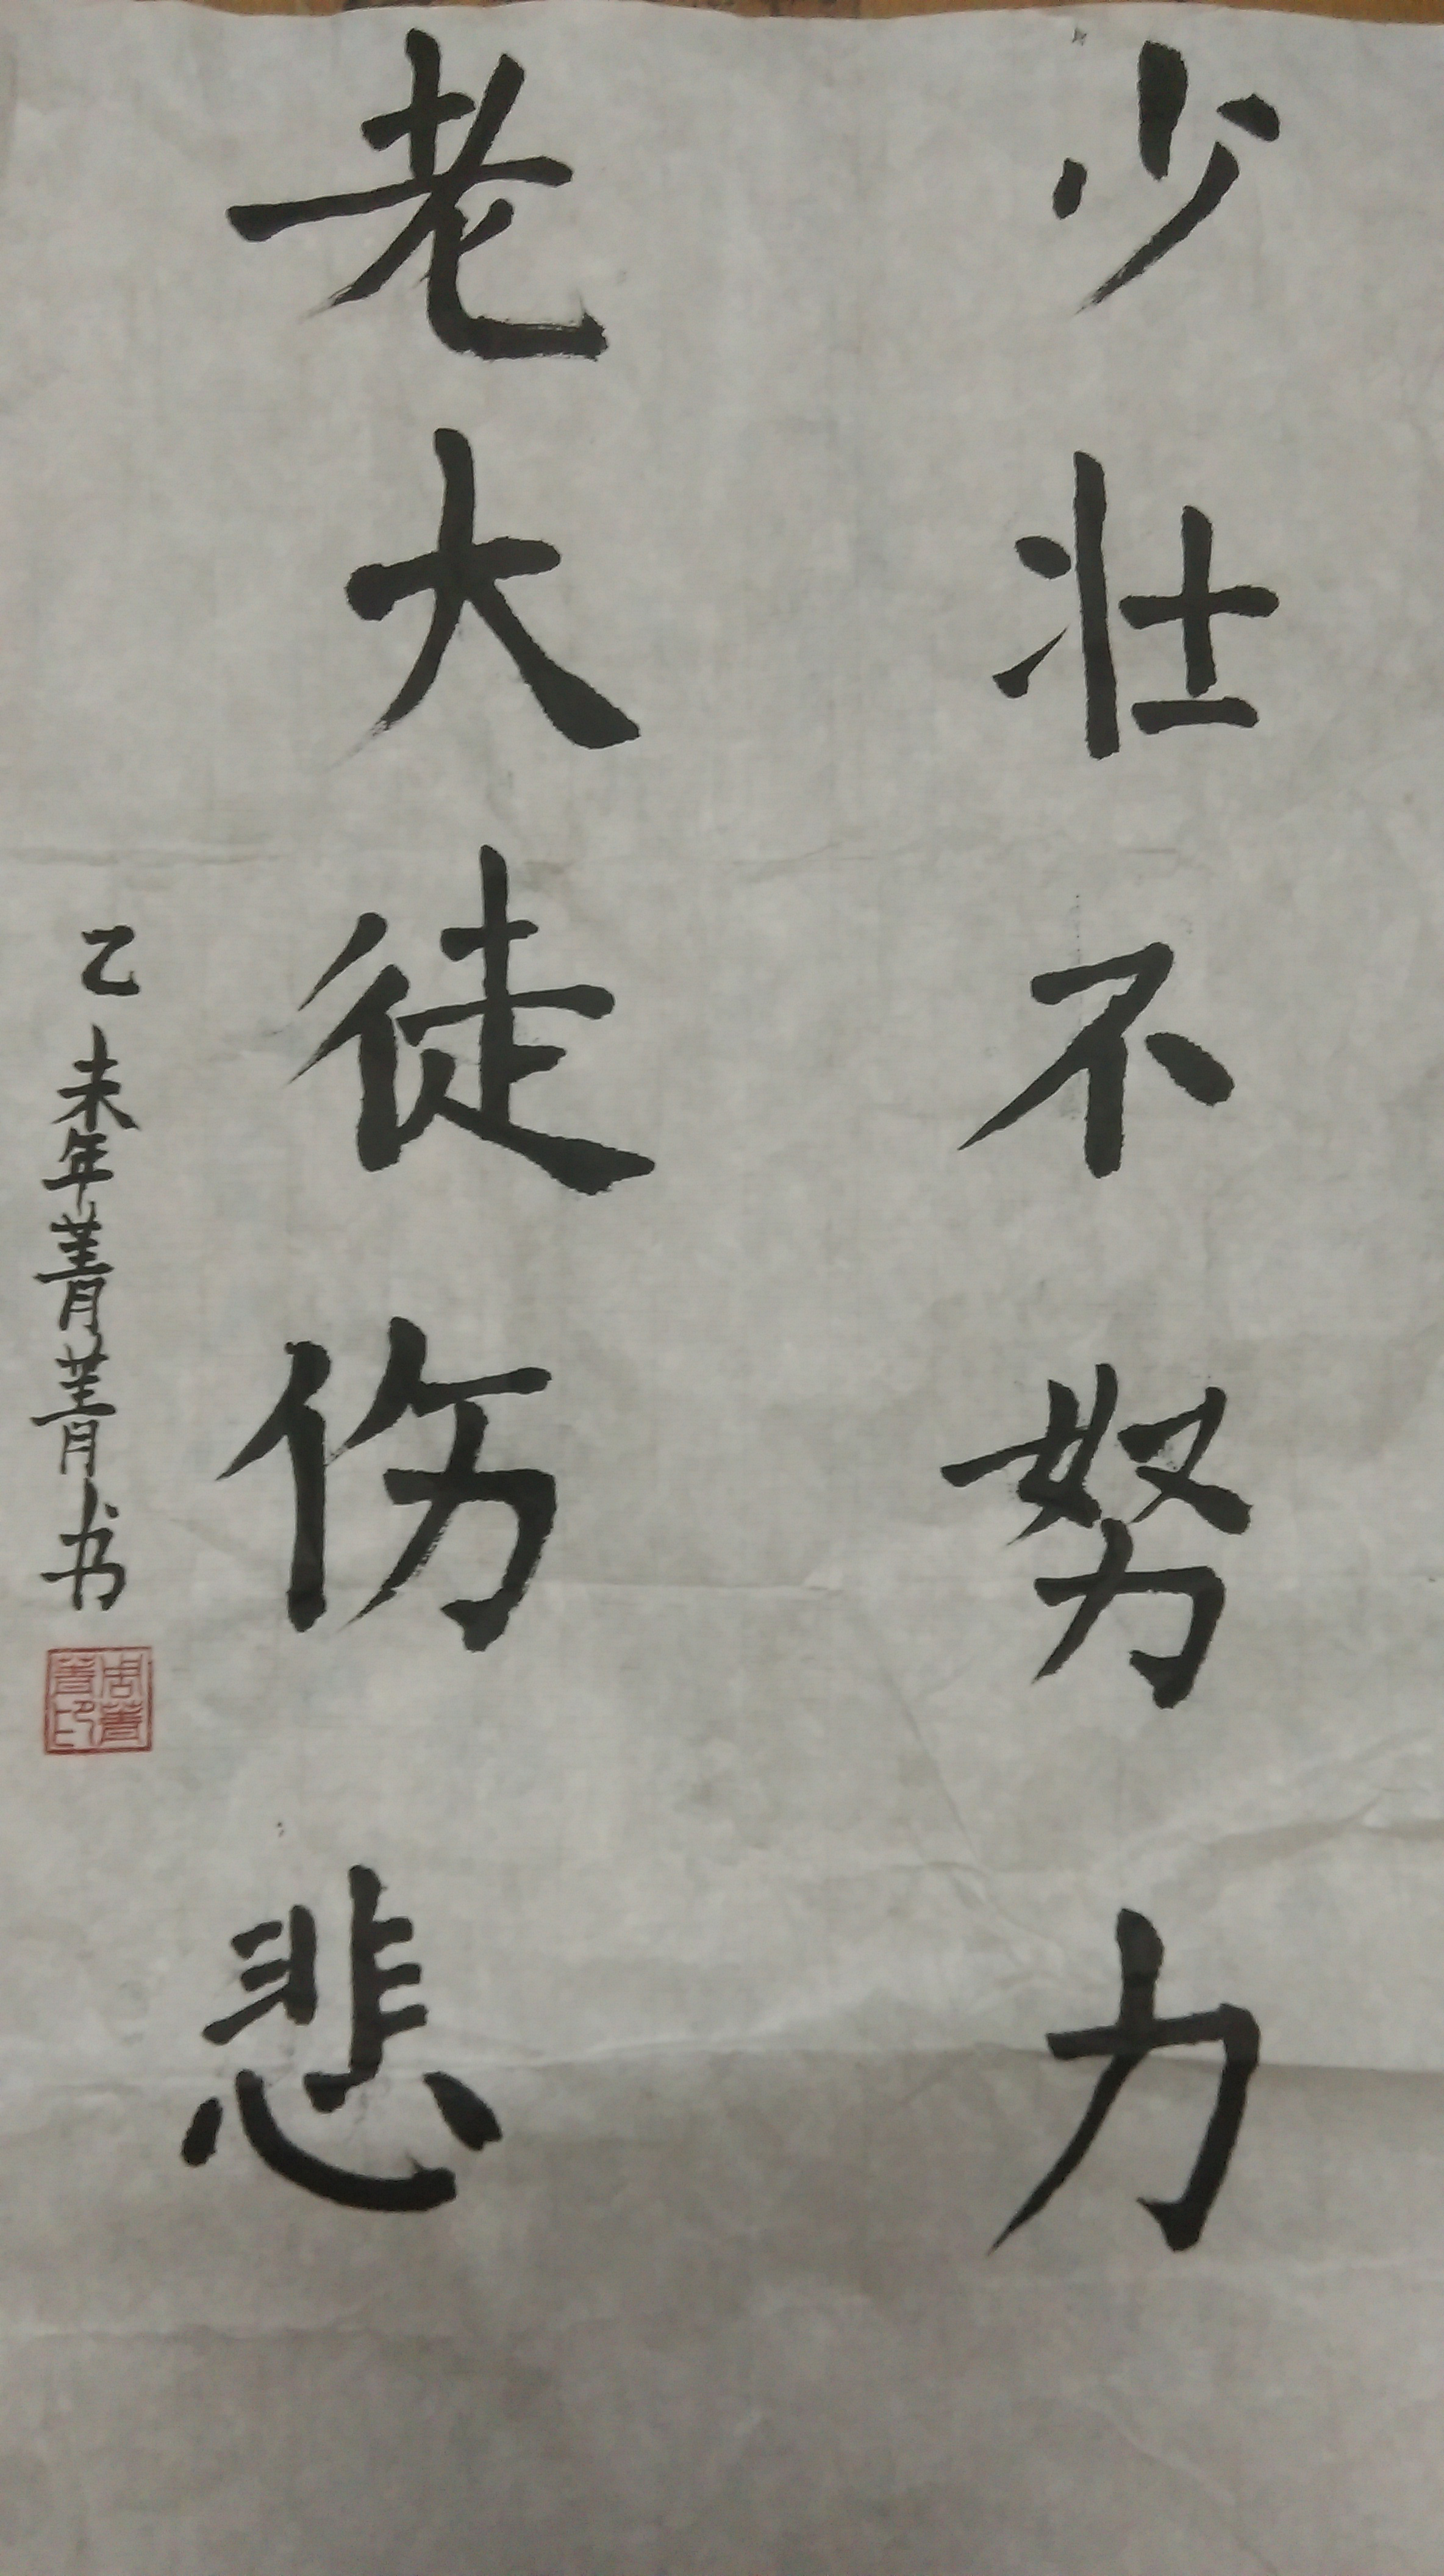 少壮不努力
老大徒伤悲
乙未年菁菁书
周菁菁印